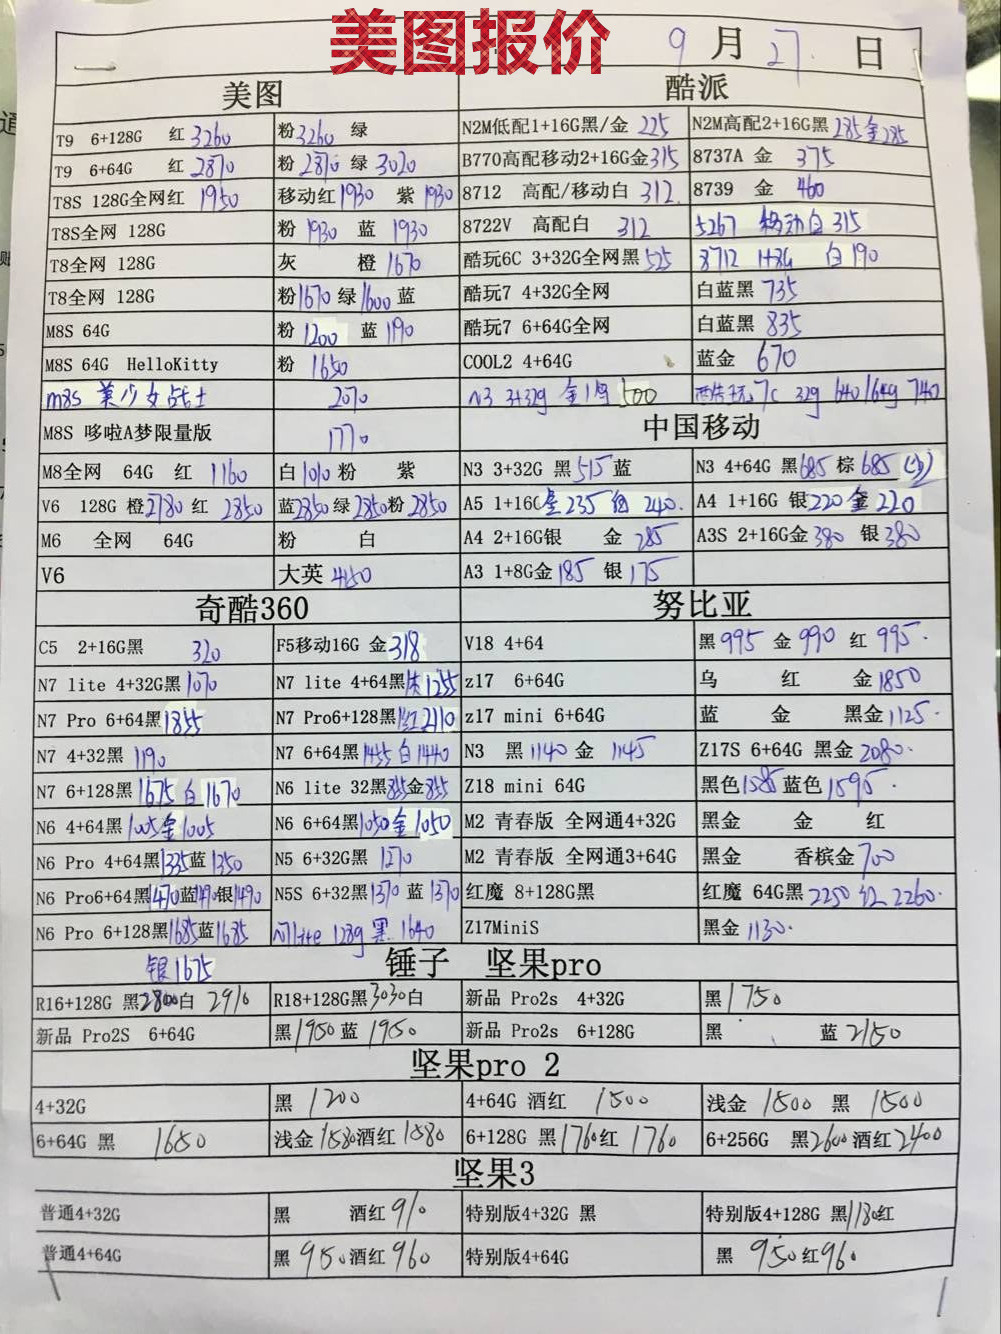 美图报价
9月27日
美图 酷派
T9 6+128G 红3260 粉3260 绿 N2M低配1+16G黑/金 225 N2M高配2+16G黑 285金285
T9 6+64G 红2870 粉 2870 绿 3020 B770高配移动2+16G金315 8737A 金 375
T8S 128G全网红 1950 移动红1930 紫 1930 8712 高配/移动白 312 8739 金 460
T8S全网 128G 粉 1930 蓝 1930 8722V 高配白 312 5267 移动白 315
T8全网 128G 灰 橙1670 酷玩6C 3+32G全网黑525 8712 1+8G 白190
T8全网 128G 粉1670 绿1600 蓝 酷玩7 4+32G全网 白蓝黑 735
M8S 64G 粉 1200 蓝 1190 酷玩7 6+64G全网 白蓝黑 835
M8S 64G HelloKitty 粉 1650 COOL2 4+64G 蓝金 670
m8s 美少女战士 2070 N3 3+32g 金 500 酷玩7C 32g 640/64g 740
M8S 哆啦A梦限量版 1770 中国移动
M8全网 64G 红 1160 白1010 粉 紫 N3 3+32G 黑515蓝 N3 4+64G 黑685 棕 685
V6 128G 橙2780 红 2850 蓝2850绿2850粉2850 A5 1+16G 235 240. A4 1+16G 银220 金220
M6 全网 64G 粉 白 A4 2+16G银 金 285 A3S 2+16G金380 银380
V6 大英 4150 A3 1+8G金185 银 175
奇酷360 努比亚
C5 2+16G黑 320 F5移动16G 金318 V18 4+64 黑995 金 990 红 995.
N7 lite 4+32G黑1070 N7 lite 4+64黑1255 z17 6+64G 乌 红 金1850
N7 Pro 6+64黑1855 N7 Pro6+128黑红2110 z17 mini 6+64G 蓝 金 黑金1125.
N7 4+32黑 1190 N7 6+64黑1455白1440 N3 黑1140金 1145 Z17S 6+64G 黑金2080.
N7 6+128黑 1675 白1670 N6 lite 32黑855金855 Z18 mini 64G 黑色1585蓝色1595.
N6 4+64黑1005金1005 N6 6+64黑1050金1050 M2 青春版 全网通4+32G 黑金 金 红
N6 Pro 4+64黑1335蓝1350 N5 6+32G黑 1270 M2 青春版 全网通3+64G 黑金 香槟金700
N6 Pro6+64黑1470蓝1490银1490 N5S 6+32黑1370 蓝 1370 红魔 8+128G黑 红魔 64G黑2250 红 2260.
N6 Pro 6+128黑1685蓝1685 N7lite 128g 黑 1640 Z17MiniS 黑金 1130.
银1675 锤子 坚果pro
R16+128G 黑2800白 2910 R18+128G黑3030白 新品 Pro2s 4+32G 黑1750
新品 Pro2S 6+64G 黑1950蓝 1950 新品 Pro2s 6+128G 黑 蓝2150
坚果pro 2
4+32G 黑 1200 4+64G 酒红 1500 浅金 1500 黑 1500
6+64G 黑 1650 浅金1580酒红1580 6+128G 黑1760红 1760 6+256G 黑2600酒红2400
坚果3
普通4+32G 黑 酒红910 特别版4+32G 黑 特别版4+128G 黑1130红
普通4+64G 黑 950酒红960 特别版4+64G 黑 950红960